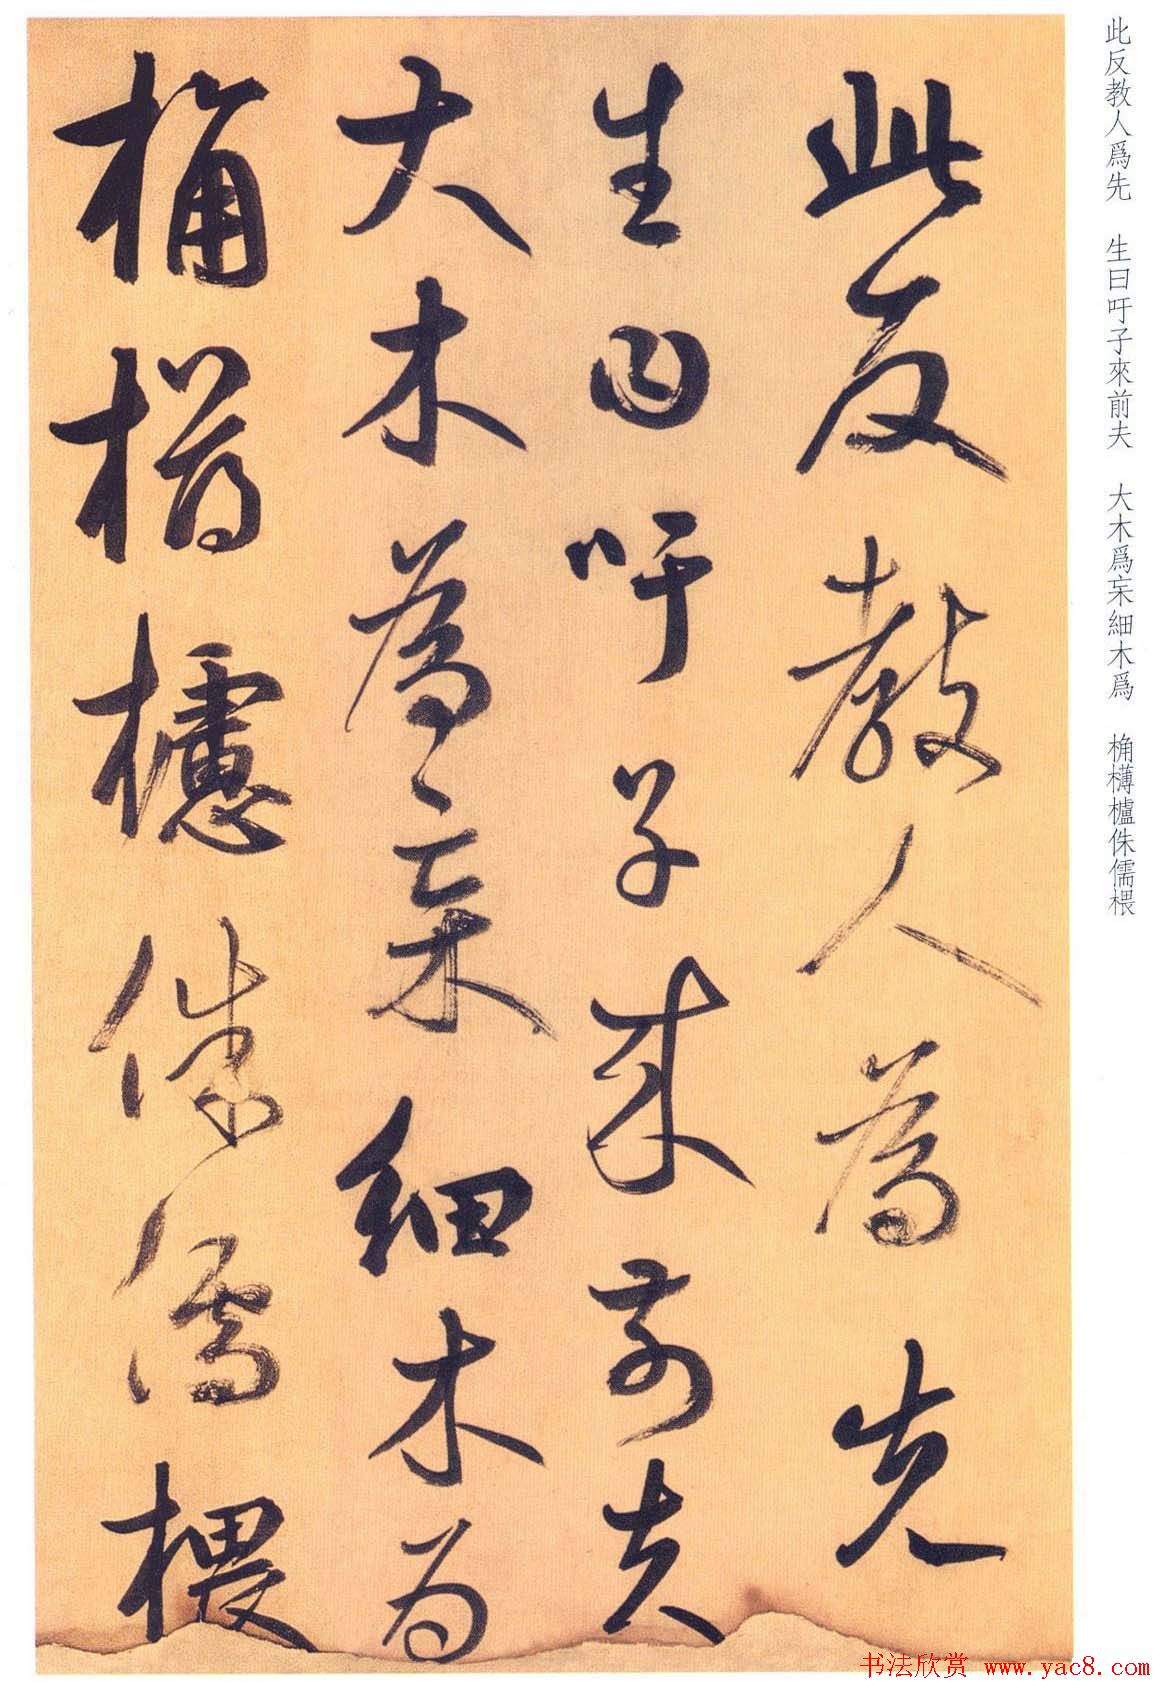 此反教人爲先 生曰吁子來前夫 大木爲杗細木爲 桷欂櫨侏儒椳
此反教人為先
生曰吁子来前夫
大木為杗細木为
桷欂櫨侏儒椳
书法欣赏 www.yac8.com